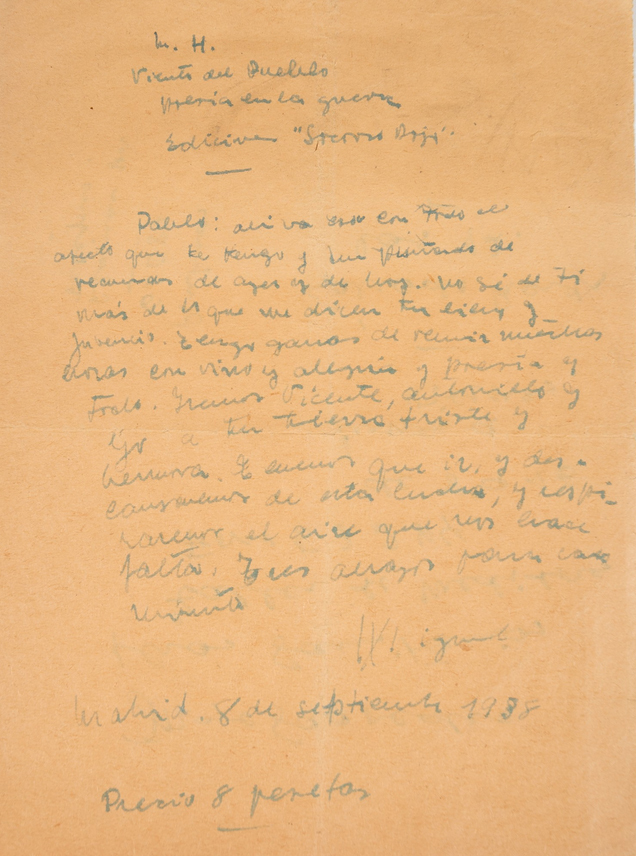 M. H.
Viento del Pueblo
poesía en la guerra
Ediciones "Socorro Rojo".
Pablo: ahí va eso con todo el
afecto que te tengo y un puñado de
recuerdos de ayer y de hoy. No sé de ti
más de lo que me dicen tu y
. Tengo ganas de reunir muchas
cosas con vino y alegría y poesía y
todo. Iremos Vicente, Antonillo y
yo a tu tierra triste y
hermosa. Tenemos que ir, y des-
cansaremos de esta lucha, y respi-
raremos el aire que nos hace
falta. Tres abrazos para cada
minuto
Miguel
Madrid. 8 de septiembre 1938
Precio 8 pesetas